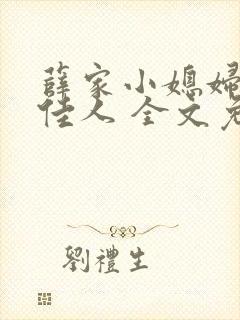 薛家小媳婦
佳人 全文免
劉禮生